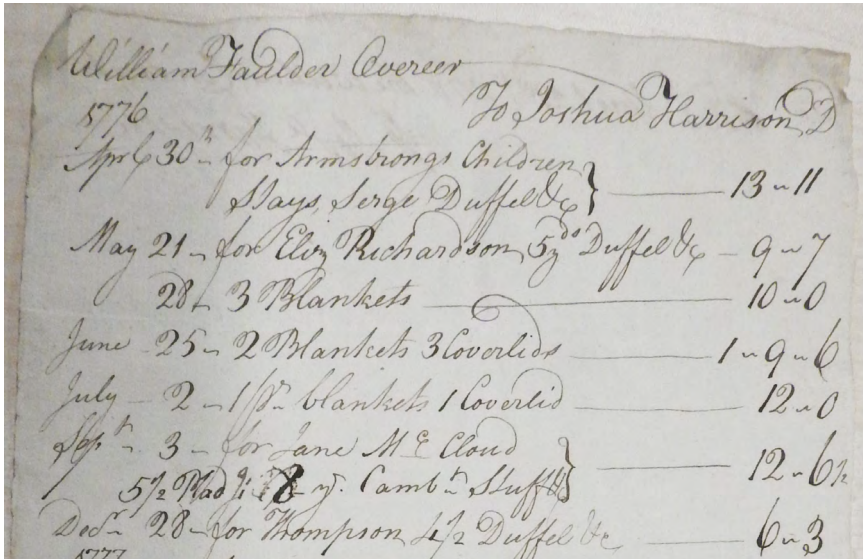 William Faulder Overeer
To Joshua Harrison D
1776
Aprl 30th for Armstrongs Children
Stays, Serge Duffel &c } 13 " 11
May 21 - for Eliz Richardson, 5 yds Duffel &c - 9 " 7
28 - 3 Blankets 10 " 0
June 25 - 2 Blankets 3 Coverlids 1 " 9 " 6
July - 2 - 1 pr blankets 1 Coverlid 12 " 0
Sepr - 3 - for Jane Mc Cloud
5 1/2 Plad 8 yd. Cambt Stuff &c } 12 " 6 1/2
Decr 28 - for Thompson 4 1/2 Duffel &c 6 " 3
1777